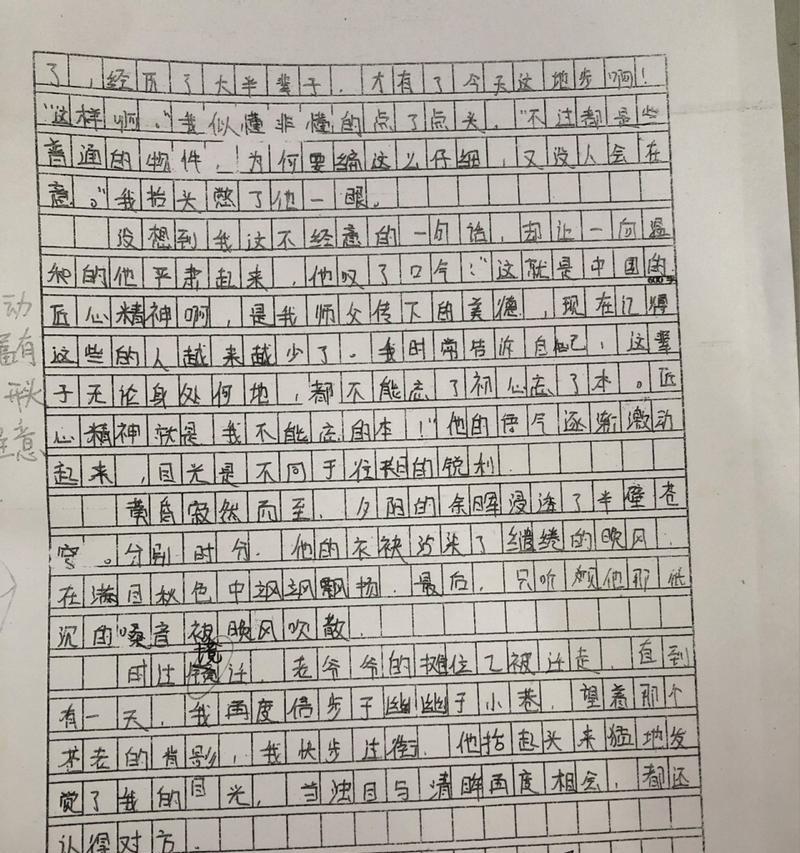 了，经历了大半辈子，才有了今天这地步啊！
“这样啊。”我似懂非懂的点了点头，“不过都是些
普通的物件，为何要编这么仔细，又没人会在
意。”我抬头憋了他一眼。
没想到我这不经意的一句话，却让一向温
和的他严肃起来，他叹了口气：“这就是中国的
600字
匠心精神啊，是我师父传下的美德，现在记得
这些的人越来越少了。我时常告诉自己，这辈
子无论身处何地，都不能忘了初心忘了本。匠
心精神就是我不能忘的本！”他的语气逐渐激动
起来，目光是不同于往日的锐利．
黄昏寂然而至．夕阳的余晖浸染了半壁苍
穹。分别时分．他的衣袂沾染了缱绻的晚风．
在满目秋色中飒飒飘扬．最后，只听见他那低
沉的嗓音被晚风吹散．
境
时过迁．老爷爷的摊位已被迁走．直到
有一天，我再度借步于幽幽于小巷．望着那个
苍老的背影，我快步过街．他抬起头来猛地发
觉了我的目光，当浊目与清眸再度相会，都还
认得对方．
动
有
形
意